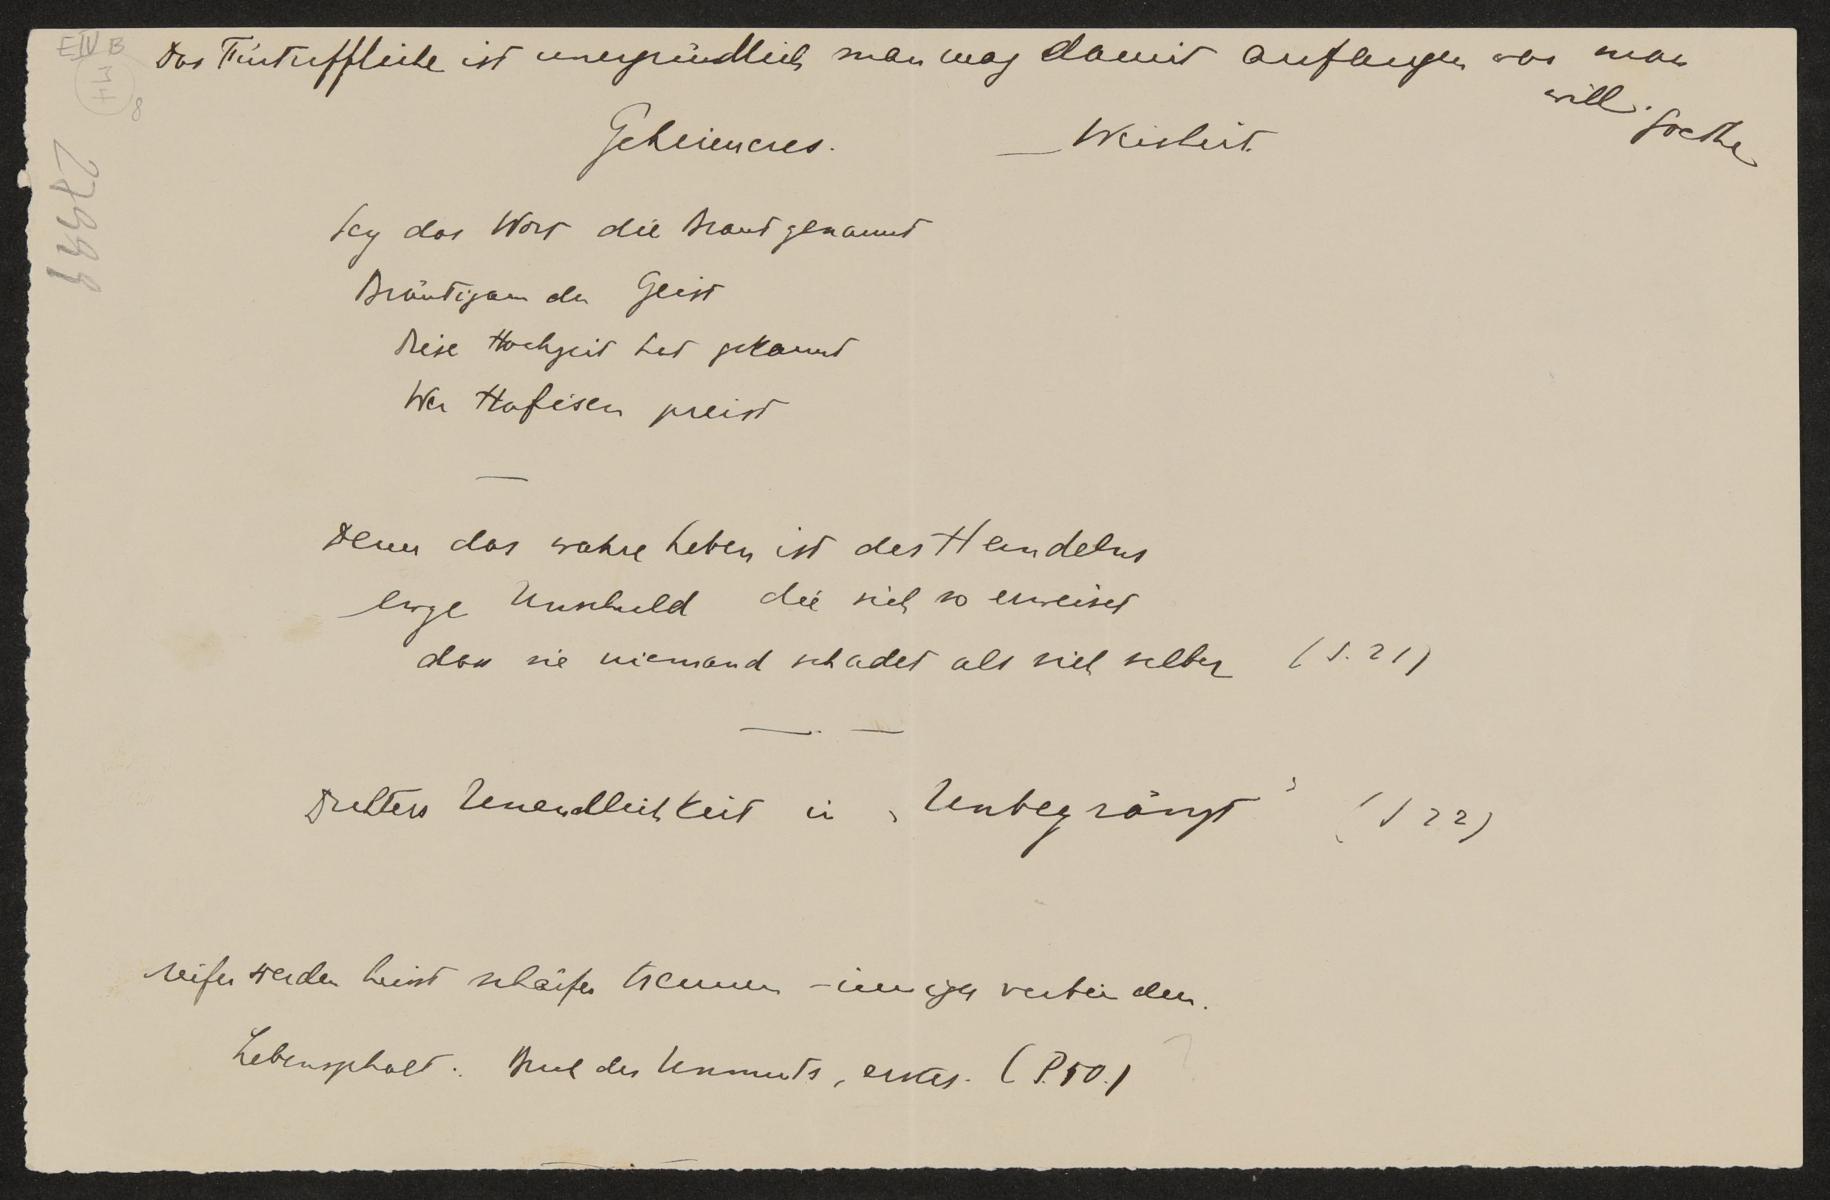 Das Fürtreffliche ist unergründlich man mag damit anfangen was man
will. Goethe
Geheimeres. — Weisheit.
Sey das Wort die Braut genannt
Bräutigam der Geist
Diese Hochzeit hat gekannt
Wer Hafisen preist
Denn das wahre Leben ist des Handelns
ewge Unschuld die sich so erweiset
dass sie niemand schadet als sich selber (S. 21)
Dichters Unendlichkeit in „Unbegränzt" (S 22)
reifer werden heisst schärfer trennen – inniger verbinden.
Buch des Unmuts, erstes. (P. 50.)
E IV B
M4
8